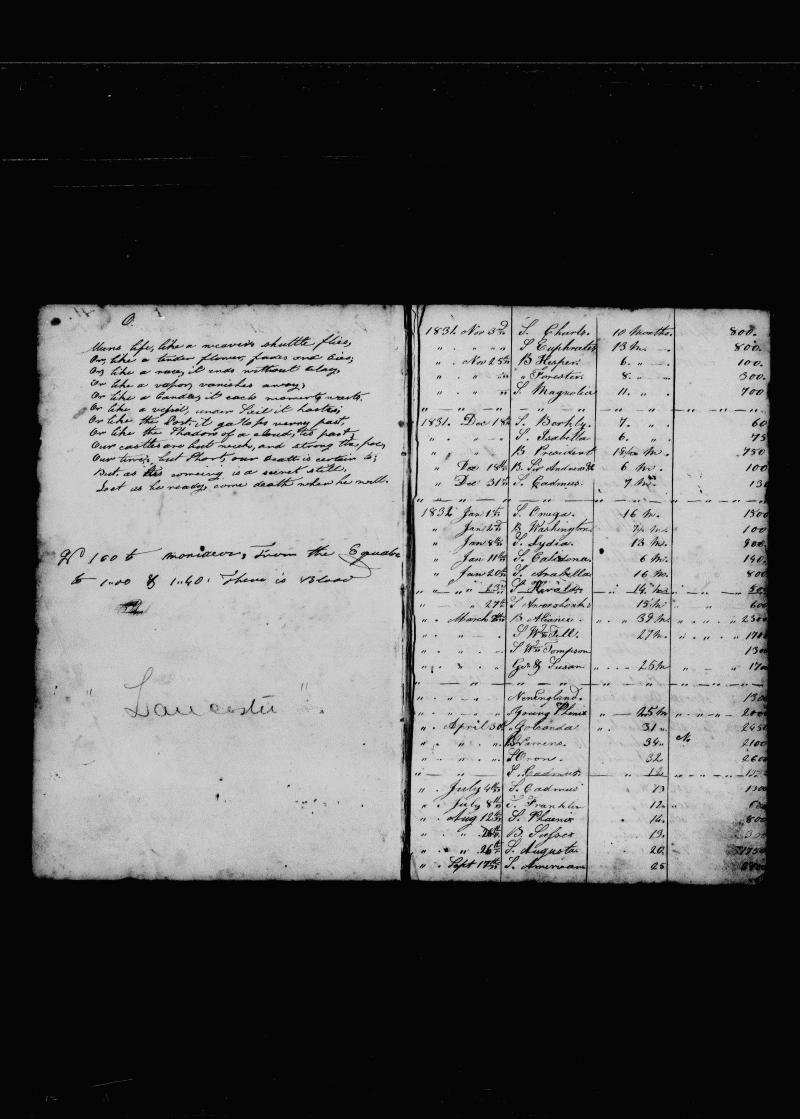 O.
Mans life, like a weaver's shuttle flies,
Or, like a tender flower, fades and dies,
Or, like a race, it ends without delay,
Or like a vapor, vanishes away,
Or like a Candle, it each moment wasts,
Or like a vessel, under Sail it hastes,
Or like the Post, it gallops verry fast,
Or like the Shadow of a cloud, tis past,
Our castles are but weak, and strong the foe,
Our time's, but Short, our Death is certain to,
But, as his comeing is a secret still,
Lest us be ready, come death when he will.
100 to from the
to 1.00 & 1.40. There is Blood
" Lancaster "
1831. Nov 3rd S. Charls. 10 Months. 800.
" " " " S. Euphrates 13 M. 800.
" Nov 25th B Hesper. 6. " 100.
" " " " " Forester 8. " 300.
" " " " S. Magnolia 11. " 700
1831. Dec 18th S. Berkly. 7. " 60
" " " S. Isabella 6. " 75
" " B President 18 M. 750
" Dec 18th B. Sir Andrew 6 M. 100
" Dec 31st S. Cadmus. 7 M. 130
1832 Jan 1st S. Omega. 16 M. 1300
" Jan 2nd B Washington 100
" Jan 8th S. Lydia. 13 M. 900
" Jan 11th S. 6 M. 140
" Jan 20th S. Arabella 16 M. 800
" " " 23rd S. Herald 14 M.
" " 27th S 15 M " 600
" March B Aliance. " " 39 M " " 2300
" " " S. Wm Tell. 27 M. " " " 1700
" " " S Wm Tompson 1300
" " " Geo & Susan " 26 M " " 1700
" " " NewEngland. 1300
" " " S Young Phenix " 25 M " " 2000
" April 30 " Golconda " 31 " 2450
" " " " 34 " No. 2100
" " " S Oron. 32 2600
" " S. Cadmus 12
" July 4th S. Cadmus 13 1300
" July 8th S. Franklin 12 "
" Aug 12th S. Phoenix " 16. 800
" " 26th B. Sussex " 13. 300
" " " 26th S. Augusta " 20. 1750
" Sept 17th S. American 28